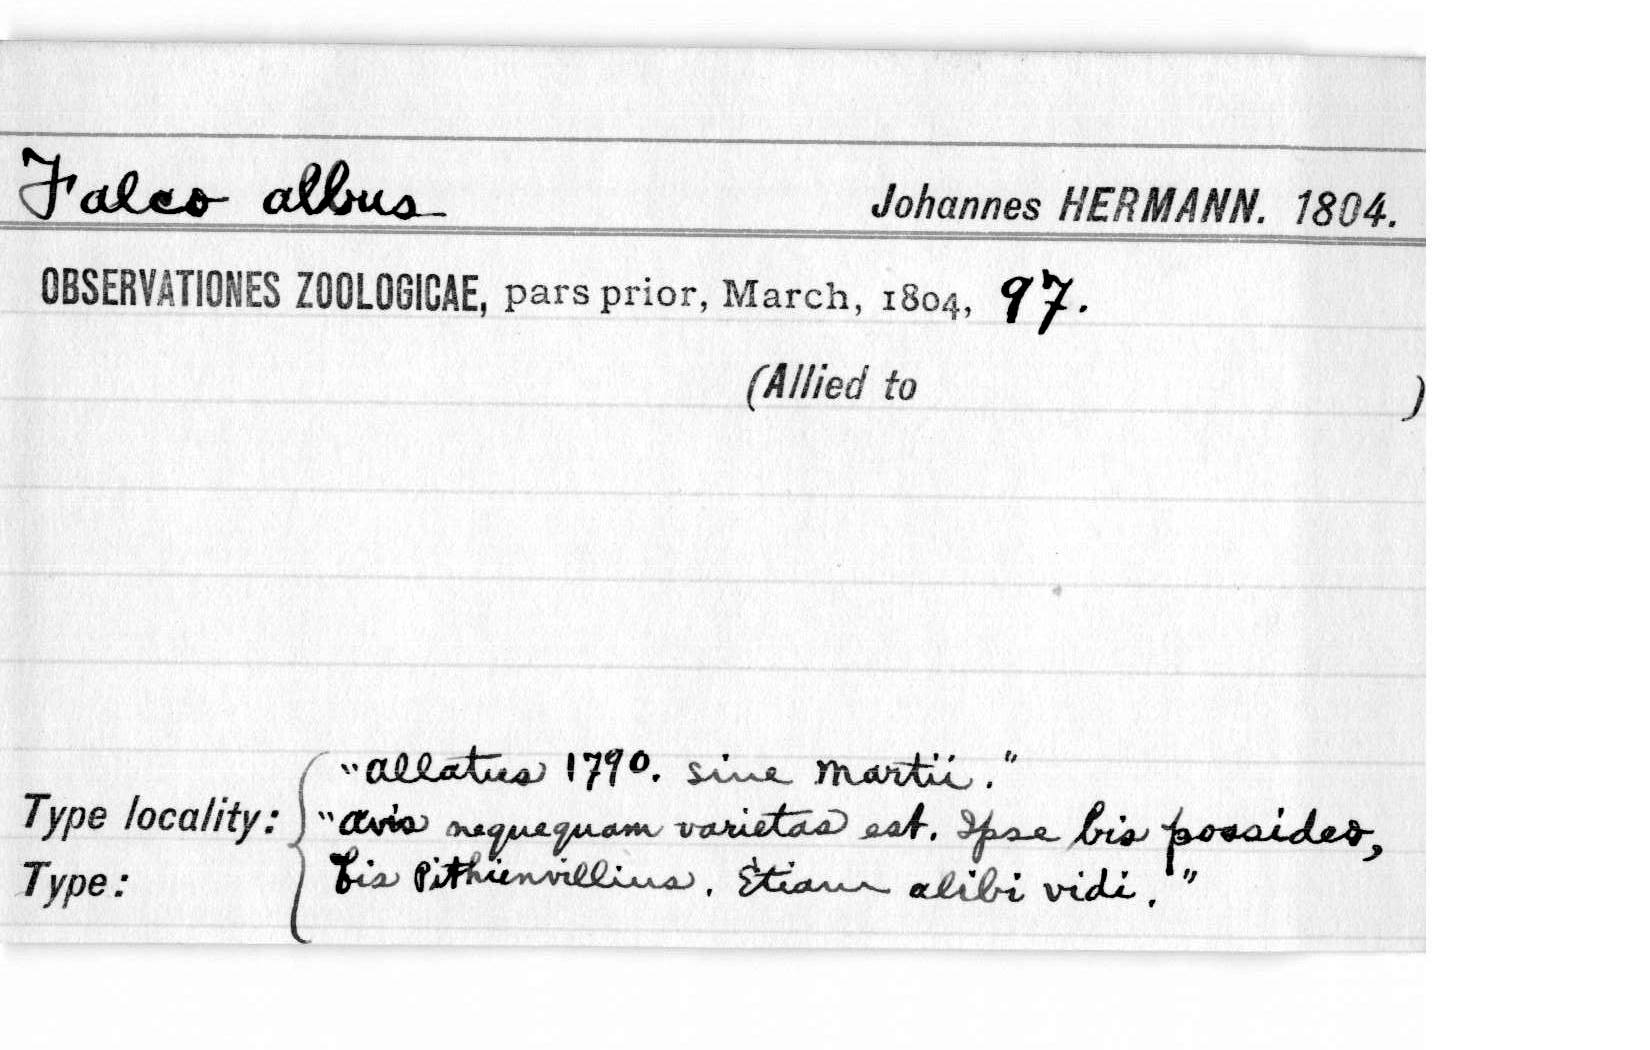 Falco albus Johannes HERMANN. 1804.
OBSERVATIONES ZOOLOGICAE, pars prior, March, 1804, 97.
(Allied to )
"allatus 1790. sine martii."
Type locality: "avis nequequam varietas est. Ipse bis possideo,
Type: bis Pithienvillius. Etiam alibi vidi."